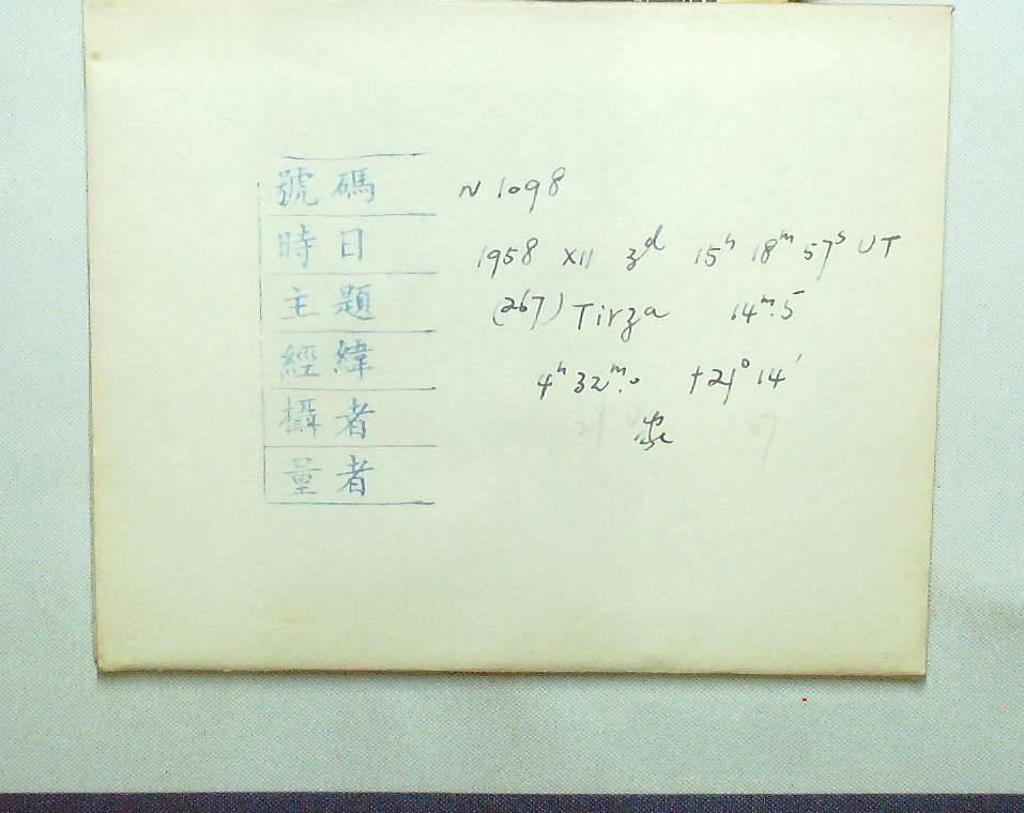 號碼 N 1098
時日 1958 XII 3d 15h 18m 57s UT
主題 (267) Tirza 14m.5
經緯 4h 32m.0 +21° 14'
攝者
量者